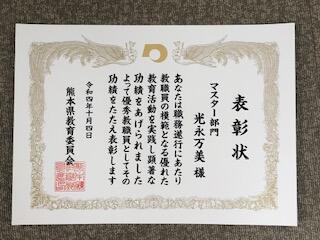 表彰状
マスター部門
光永万美 様
あなたは職務遂行にあたり
教職員の模範となる優れた
教育活動を実践し顕著な
功績をあげられました
よって優秀教職員としてその
功績をたたえ表彰します
令和四年十月四日
熊本県教育委員会